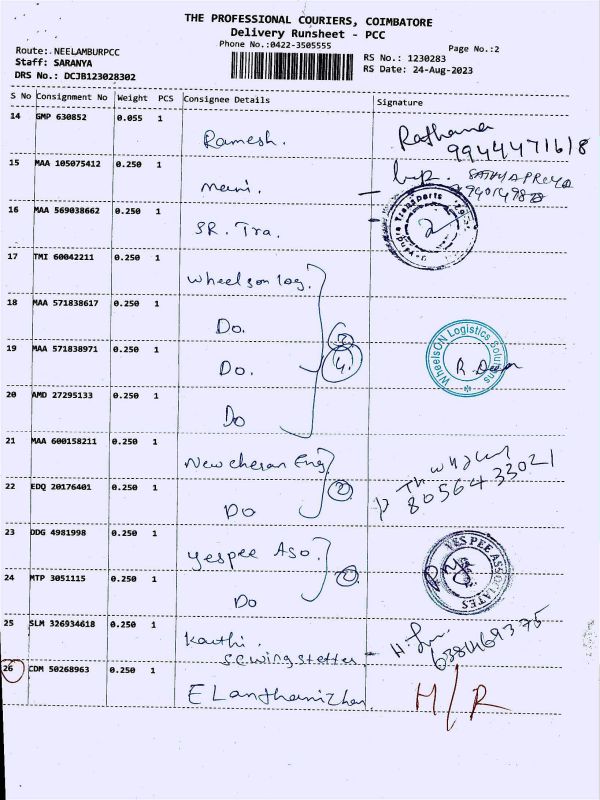 THE PROFESSIONAL COURIERS, COIMBATORE
Delivery Runsheet - PCC
Phone No.:0422-3505555
Page No.:2
Route: NEELAMBURPCC
Staff: SARANYA
DRS No.: DCJB123028302
RS No.: 1230283
RS Date: 24-Aug-2023
S No Consignment No Weight PCS Consignee Details Signature
14 GMP 630852 0.055 1
Ramesh. Rathana
9944471618
15 MAA 105075412 0.250 1
mani. SATHYAPRIYA
16 MAA 569038662 0.250 1
SR. Tra. Transports
17 TMI 60042211 0.250 1
Wheelson log.
18 MAA 571838617 0.250 1
Do.
19 MAA 571838971 0.250 1
Do. 4. WheelsON Logistics Solutions
20 AMD 27295133 0.250 1
Do
21 MAA 600158211 0.250 1
New cheran Eng.
22 EDQ 20176401 0.250 1
Do 2 8056433021
23 DDG 4981998 0.250 1
Yespee Aso. YESPEE ASSOCIATES
24 MTP 3051115 0.250 1
Do 2
25 SLM 326934618 0.250 1
6381469375
26 CDM 50268963 0.250 1
ELanthamizhan M/R